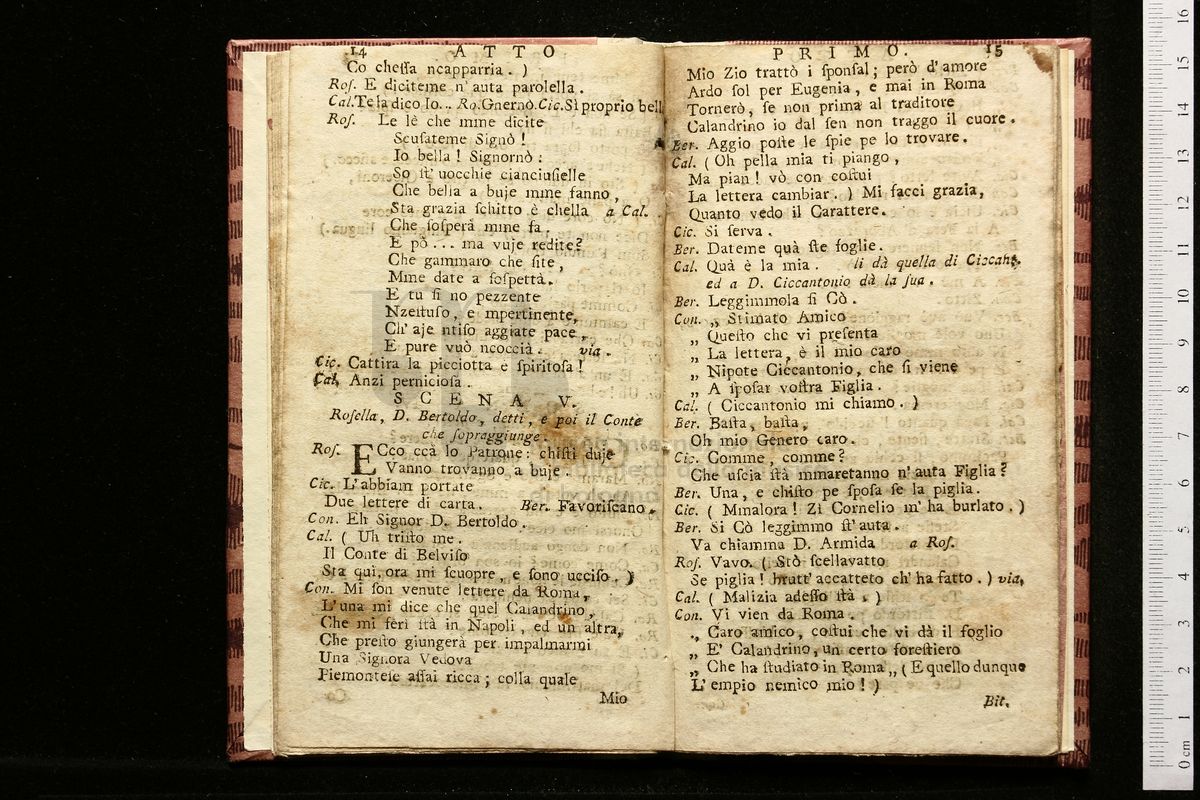 14 ATTO
Co chessa ncapparria. )
Ros. E diciteme n' auta parolella.
Cal. Te la dico Io... Ro. Gnernò. Cic. Sì proprio bell
Ros. Le lè che mme dicite
Scusateme Signò!
Io bella! Signornò:
So st' uocchie cianciusielle
Che bella a buje mme fanno,
Sta grazia schitto è chella a Cal.
Che sosperà mme fa.
E pò... ma vuje redite?
Che gammaro che site,
Mme date a sospettà.
E tu si no pezzente
Nzeituso, e mpertinente,
Ch' aje ntiso aggiate pace,
E pure vuò ncoccià. via.
Cic. Cattira la picciotta e spiritosa!
Cal. Anzi perniciosa.
SCENA V.
Rosella, D. Bertoldo, detti, e poi il Conte
che sopraggiunge.
Ros. ECco ccà lo Patrone: chisti duje
Vanno trovanno a buje.
Cic. L' abbiam portate
Due lettere di carta. Ber. Favoriscano.
Con. Eh Signor D. Bertoldo.
Cal. ( Uh tristo me.
Il Conte di Belviso
Sta quì, ora mi scuopre, e sono ucciso. )
Con. Mi son venute lettere da Roma,
L' una mi dice che quel Calandrino,
Che mi ferì stà in Napoli, ed un altra,
Che presto giungerà per impalmarmi
Una Signora Vedova
Piemontese assai ricca; colla quale
Mio
PRIMO. 15
Mio Zio trattò i sponsal; però d' amore
Ardo sol per Eugenia, e mai in Roma
Tornerò, se non prima al traditore
Calandrino io dal sen non traggo il cuore.
Ber. Aggio poste le spie pe lo trovare.
Cal. ( Oh pella mia ti piango,
Ma pian! vò con costui
La lettera cambiar. ) Mi facci grazia,
Quanto vedo il Carattere.
Cic. Si serva.
Ber. Dateme quà ste foglie.
Cal. Quà è la mia. li dà quella di Ciccant.
ed a D. Ciccantonio dà la sua.
Ber. Leggimmola si Cò.
Con. „ Stimato Amico
„ Questo che vi presenta
„ La lettera, è il mio caro
„ Nipote Ciccantonio, che si viene
„ A sposar vostra Figlia.
Cal. ( Ciccantonio mi chiamo. )
Ber. Basta, basta,
Oh mio Genero caro.
Cic. Comme, comme?
Che uscia stà mmaretanno n' auta Figlia?
Ber. Una, e chisto pe sposa se la piglia.
Cic. ( Mmalora! Zi Cornelio m' ha burlato. )
Ber. Si Cò leggimmo st' auta.
Va chiamma D. Armida a Ros.
Ros. Vavo. ( Stò scellavatto
Se piglia! brutt' accatteto ch' ha fatto. ) via,
Cal. ( Malizia adesso stà. )
Con. Vi vien da Roma.
„ Caro amico, costui che vi dà il foglio
„ E' Calandrino, un certo forestiero
„ Che ha studiato in Roma „ ( E quello dunque
L' empio nemico mio! )
Bir.